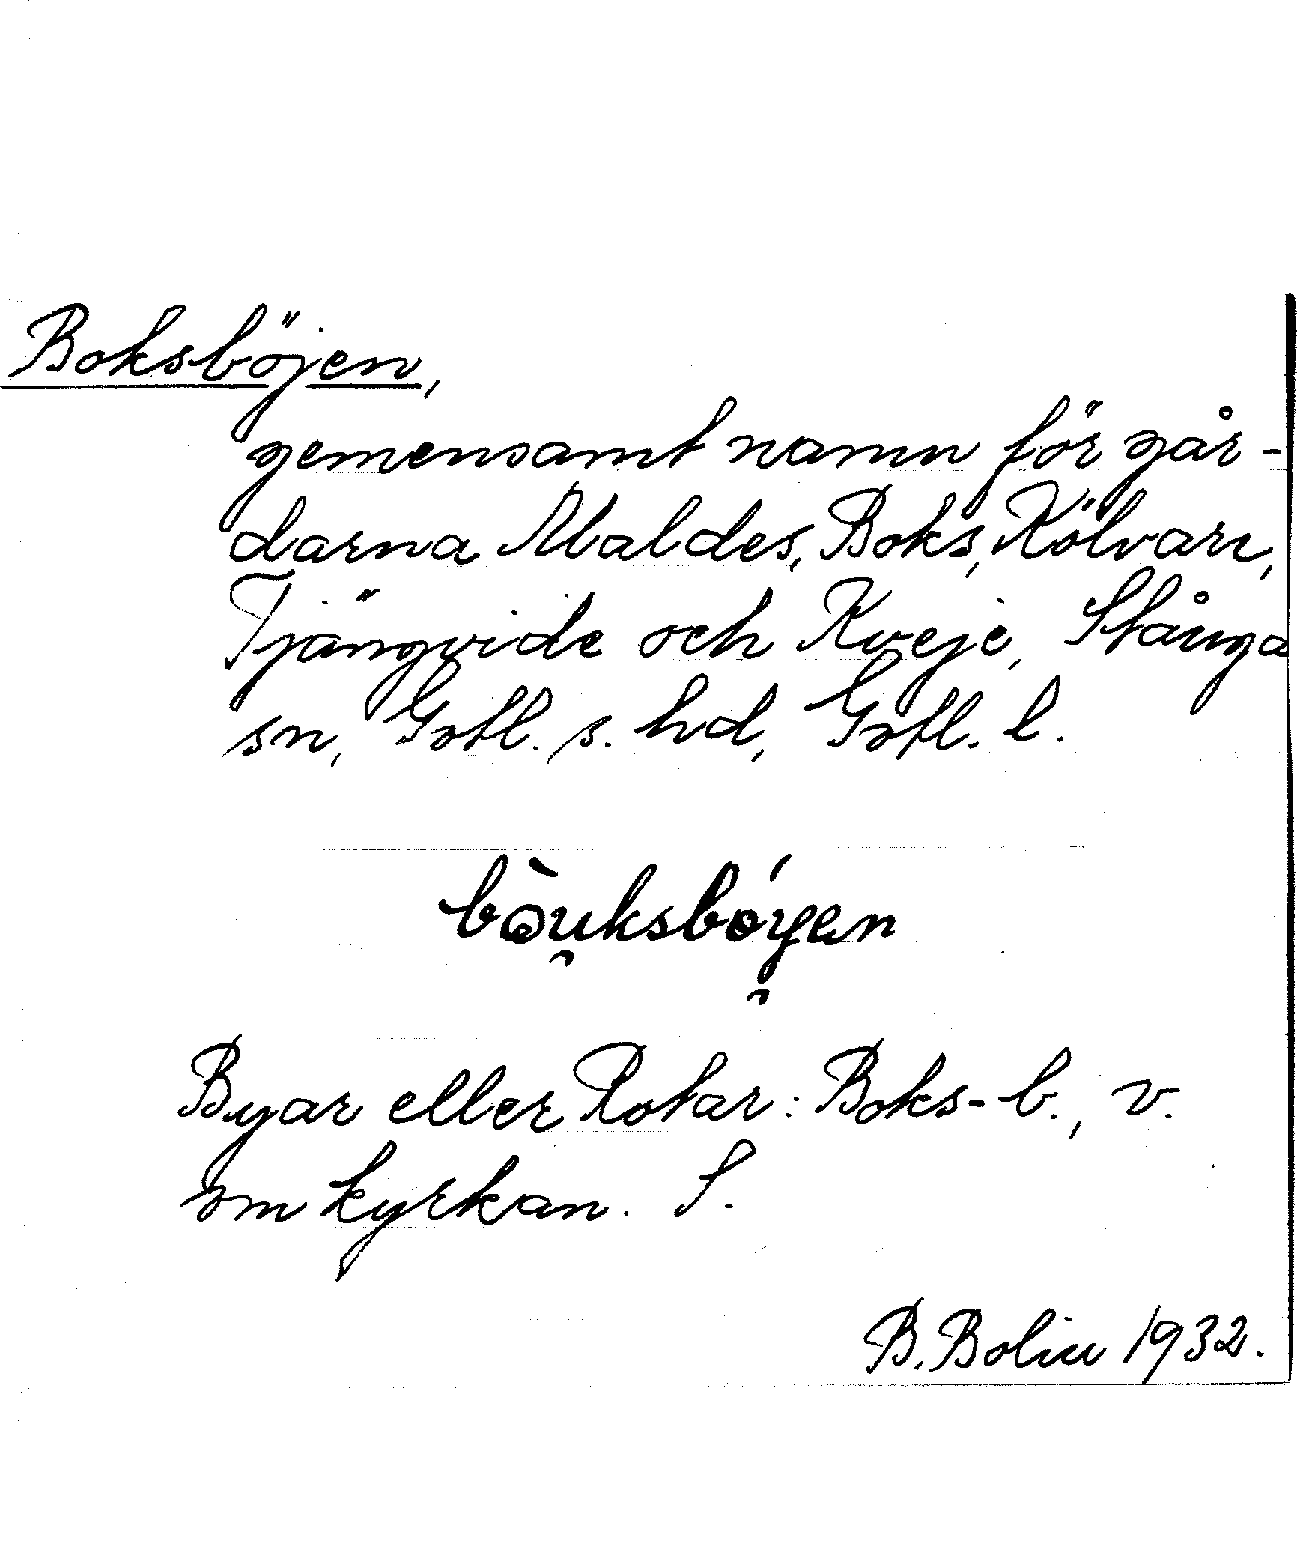 Boksböjen,
gemensamt namn för går-
darna Maldes, Boks, Kölvare,
Tjängvide och Kveje, Stånga
sn, Gotl. s. hd, Gotl. l.
bòu̯ksbóy̯en
Byar eller Rotar: Boks-b., v.
om kyrkan. S.
B. Bolin 1932.